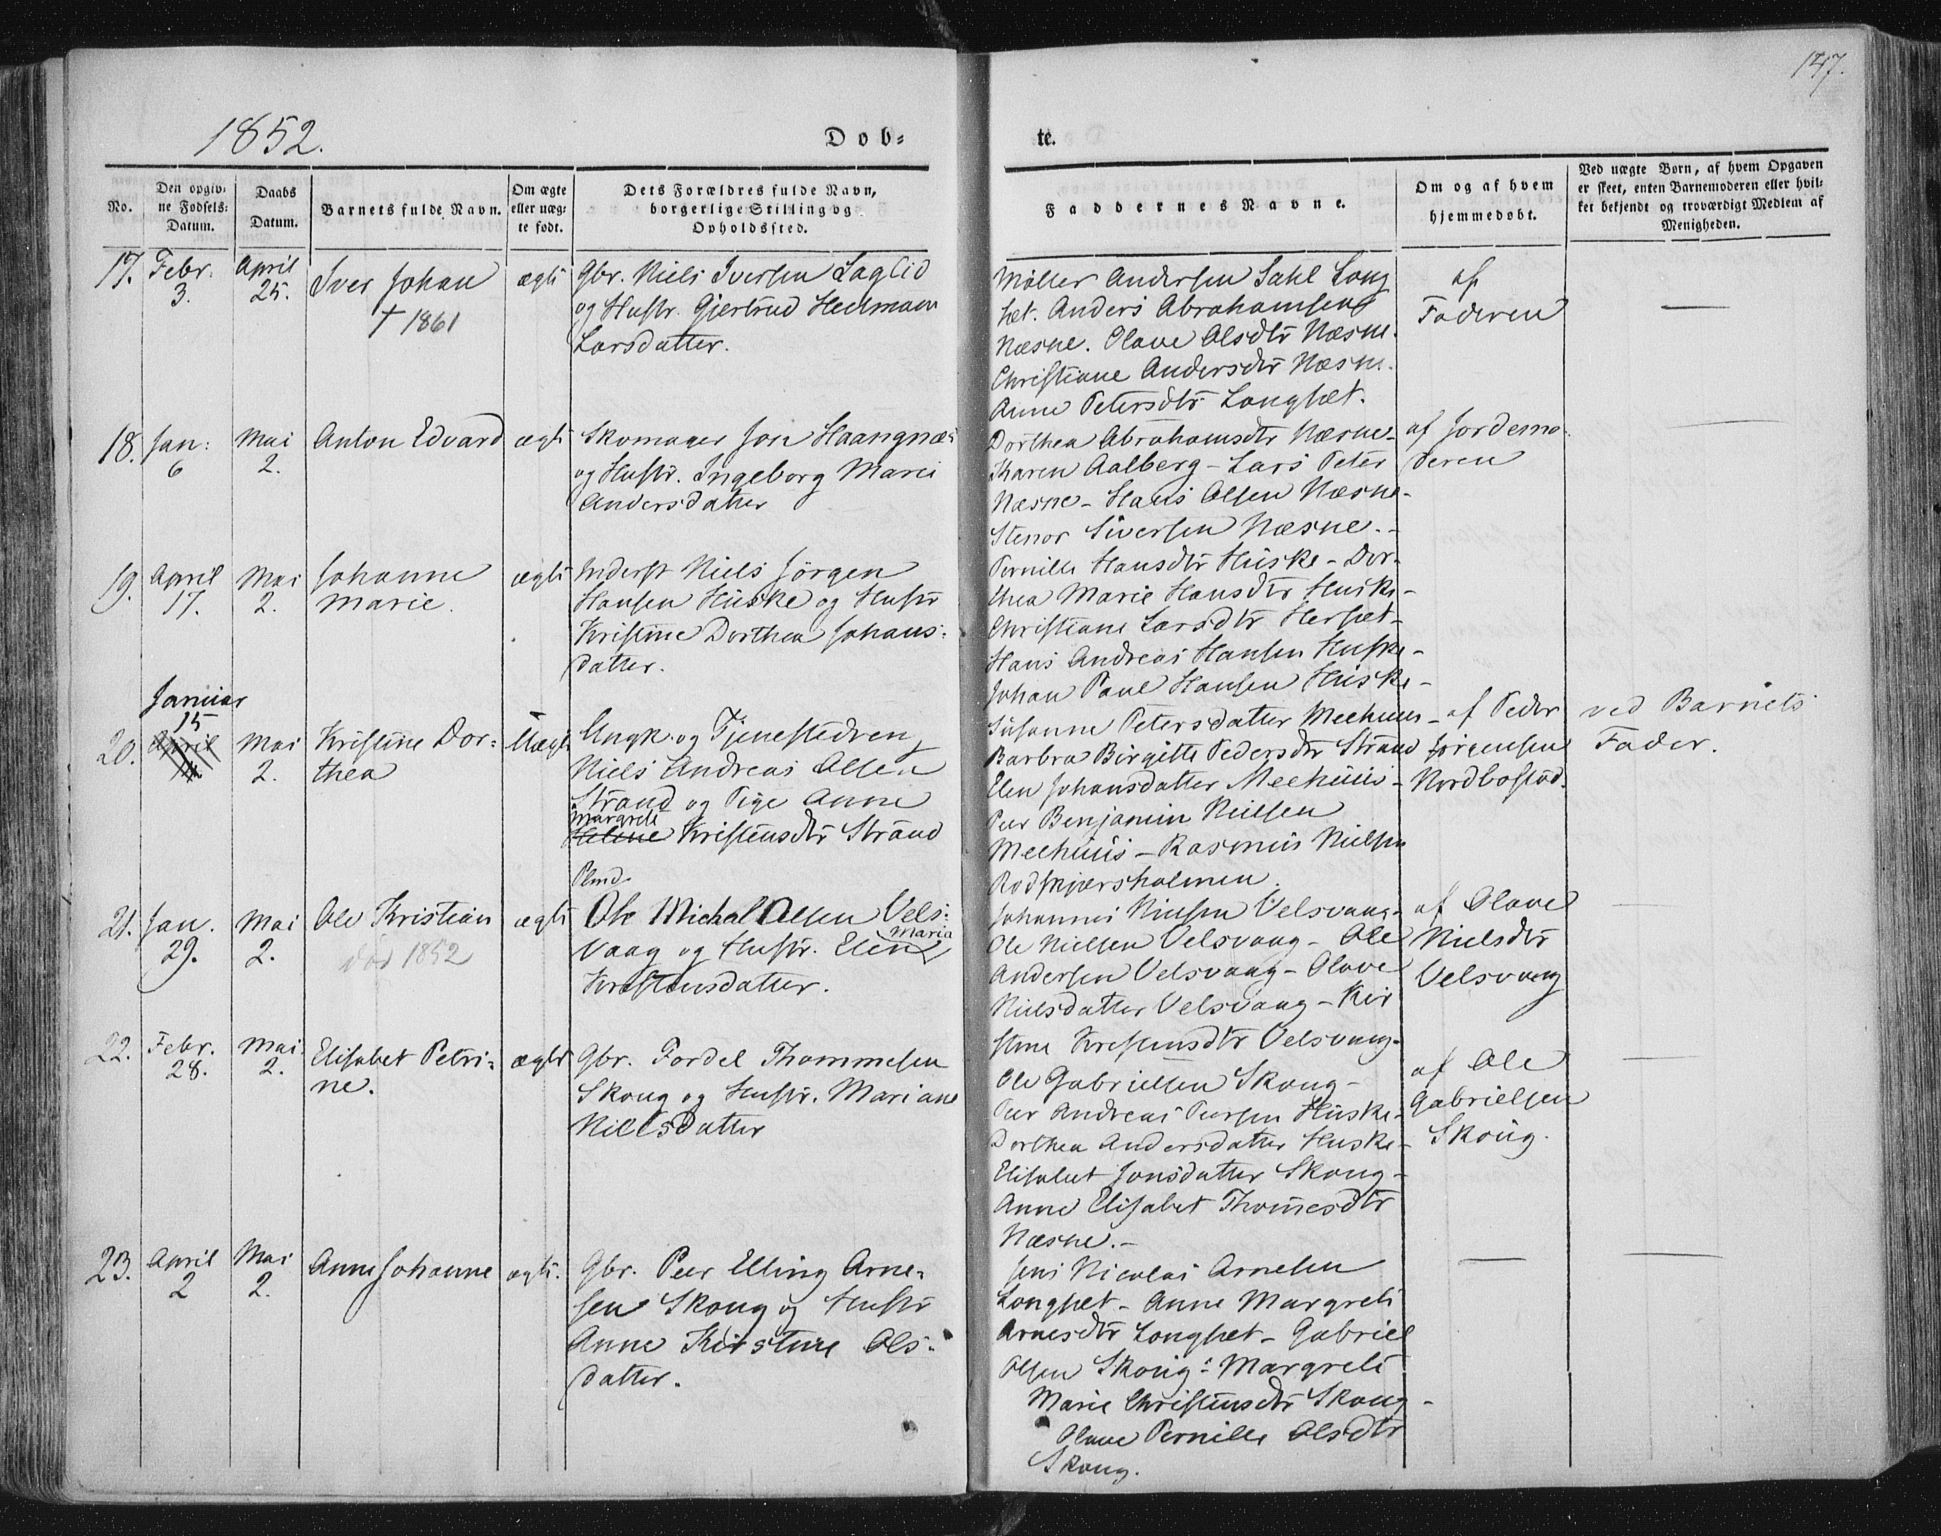 147.
1852.
Dob=
te.
No.
Den opgiv=
ne Fødsels=
Datum.
Daabs
Datum.
Barnets fulde Navn.
Om ægte
eller uæg=
te født.
Dets Forældres fulde Navn,
borgerlige Stilling og
Opholdssted.
Faddernes Navne.
Om og af hvem
hjemmedøbt.
Ved uægte Børn, af hvem Opgaven
er skeet, enten Barnemoderen eller hvil=
ket bekjendt og troværdigt Medlem af
Menigheden.
17.
Febr.
3.
April
25.
Iver Johan
† 1861
ægte
Gbr. Niels Iversen Laglid
og Hustr. Gjertrud Hedmann
Larsdatter.
Møller Andersen Sahl Lang
set. Anders Abrahamsen
Næsne. Olave Olsdtr Næsne.
Christiane Andersdtr Næsne.
Anne Petersdtr Langset.
af
Faderen
18.
Jan:
6
Mai
2.
Anton Edvard
ægte
Skomager Jon Haangnæs
og Hustr. Ingeborg Marie
Andersdatter
Dorthea Abrahamsdtr Næsne -
Karen Aalberg - Lars Peter
Næsne - Hans Olsen Næsne -
Stenor Siversen Næsne. -
af Jordemo=
deren
19.
April
17.
Mai
2.
Johanne
Marie.
ægte
Inderst Niels Jörgen
Hansen Huske og Hustr
Kristine Dorthea Johans=
datter.
Pernille Hansdtr Huske - Dor-
thea Marie Hansdtr Huske -
Christiane Larsdtr Herset -
Hans Andreas Hansen Huske -
Johan Paul Hansen Huske -
20.
Januar
15
April
Mai
2.
Kristine Dor=
thea
Uægte
Ungk. og Tjenestedreng
Niels Andreas Olsen
Strand og Pige Anne
Margrete
Helene Kristensdtr Strand
Susanne Petersdatter Meehuus -
Barbra Birgitte Pedersdtr Strand
Elen Johansdatter Meehuus -
Peer Benjamin Nielsen
Meehuus - Rasmus Nielsen
Rodskjærsholmen.
af Peder
Jörgensen
Nordbostad.
ved Barnets
Fader.
21.
Jan.
29.
Mai
2.
Ole Kristian
död 1852
ægte
Plmd.
Ole Michal Olsen Vels=
Maria
vaag og Hustr. Elen
Kristensdatter.
Johannes Nielsen Velsvaag -
Ole Nielsen Velsvaag - Ole
Andersen Velsvaag - Olave
Nielsdatter Velsvaag - Kir
stine Kristensdtr Velsvaag -
af Olave
Nielsdtr
Velsvaag
22.
Febr.
28.
Mai
2.
Elisabet Petri=
ne.
ægte
Gbr. Fordel Thommesen
Skoug og Hustr. Mariane
Nielsdatter
Ole Gabrielsen Skoug -
Peer Andreas Peersen Huske -
Dorthea Andersdatter Huske -
Elisabet Jonsdatter Skoug -
Anne Elisabet Thomesdtr
Næsne. -
af Ole
Gabrielsen
Skoug.
23.
April
2
Mai
2.
Anne Johanne
ægte.
Gbr. Peer Elling Arne=
sen Skoug og Hustr
Anne Kirstine Ols=
datter.
Jens Nicolai Arnesen
Langset - Anne Margrete
Arnesdtr Langset - Gabriel
Olsen Skoug - Margrete
Marie Christensdtr Skoug -
Olave Pernille Olsdtr
Skoug.